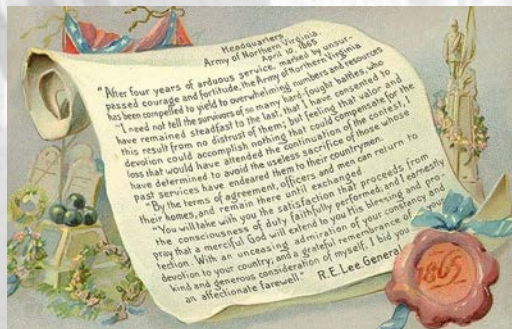 Headquarters,
Army of Northern Virginia.
April 10, 1865
"After four years of arduous service, marked by unsur-
passed courage and fortitude, the Army of Northern Virginia
has been compelled to yield to overwhelming numbers and resources
"I need not tell the survivors of so many hard fought battles, who
have remained steadfast to the last, that I have consented to
this result from no distrust of them; but feeling that valor and
devotion could accomplish nothing that could compensate for the
loss that would have attended the continuation of the contest, I
have determined to avoid the useless sacrifice of those whose
past services have endeared them to their countrymen.
"By the terms of agreement, officers and men can return to
their homes, and remain there until exchanged
"You will take with you the satisfaction that proceeds from
the consciousness of duty faithfully performed; and I earnestly
pray that a merciful God will extend to you His blessing and pro-
tection. With an unceasing admiration of your constancy and
devotion to your country, and a grateful remembrance of your
kind and generous consideration of myself, I bid you
an affectionate farewell" R.E. Lee, General
1865